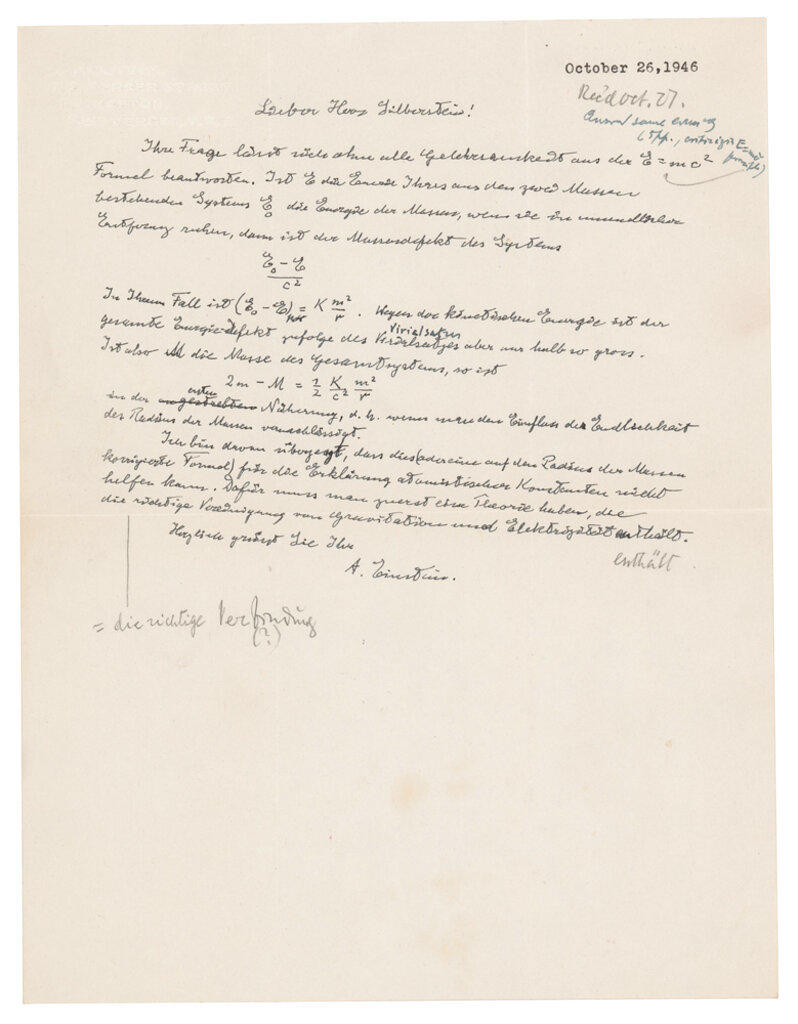 October 26, 1946
Rec'd Oct. 27.
Answ'd same evening
(5 pp., criticizing E=mc²
formula)
Lieber Herr Silberstein!
Ihre Frage lässt sich ohne alle Gelehrsamkeit aus der E = mc²
Formel beantworten. Ist E die Energie Ihres aus den zwei Massen
bestehenden Systems E₀ die Energie der Massen, wenn sie in unendlicher
Entfernung ruhen, dann ist der Massendefekt des Systems
E₀ - E
c²
In Ihrem Fall ist (E₀ - E) = K m²/r . Wegen der kinetischen Energie ist der
Virialsatzes
gesamte Energie-Defekt zufolge des Virialsatzes aber nur halb so gross.
Ist also M die Masse des Gesamtsystems, so ist
2m - M = 1/2 K/c² m²/r
ersten
in der Näherung, d. h. wenn man den Einfluss der Endlichkeit
des Radius der Massen vernachlässigt.
Ich bin davon überzeugt, dass dies (oder eine auf den Radius der Massen
korrigierte Formel) für die Erklärung atomistischer Konstanten nicht
helfen kann. Dafür muss man zuerst eine Theorie haben, die
die richtige Vereinigung von Gravitation und Elektrizität enthält.
enthält
Herzlich grüsst Sie Ihr
A. Einstein.
= die richtige Verbindung
(?)